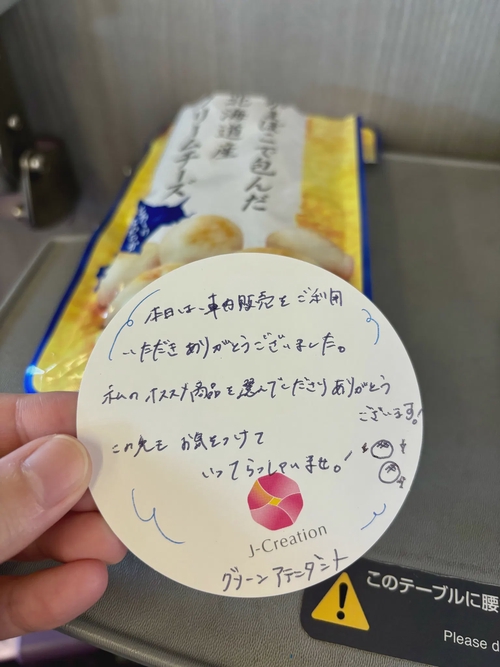 かまぼこで包んだ
北海道産
クリームチーズ
本日は、車内販売をご利用
いただきありがとうございました。
私のオススメ商品を選んでくださりありがとう
ございます!
この先もお気をつけて
いってらっしゃいませ!
J-Creation
グリーンアテンダント
このテーブルに腰
Please d